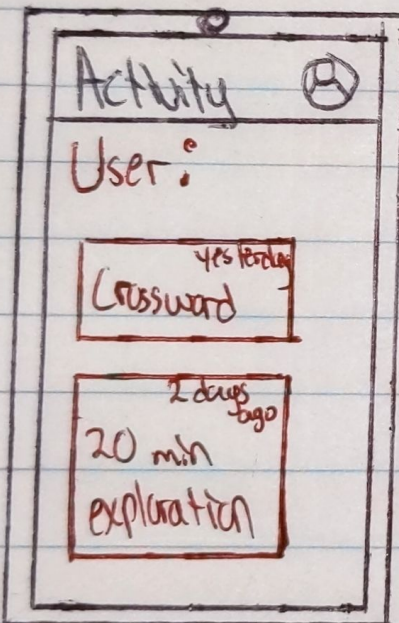 Activity
User:
yesterday
Crossword
2 days
ago
20 min
exploration